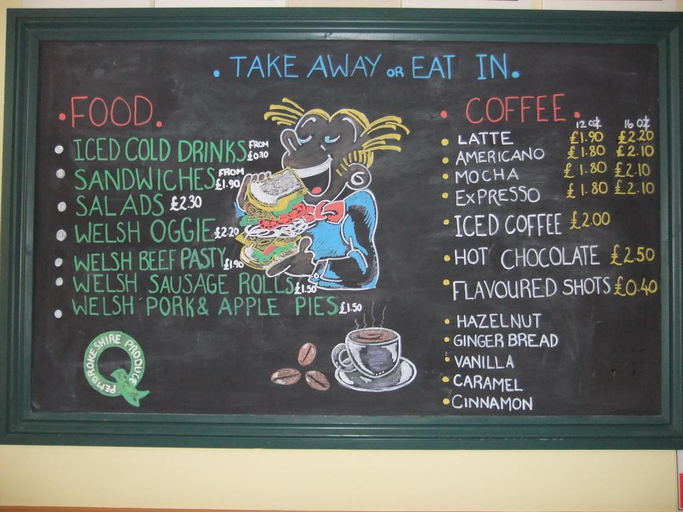 . TAKE AWAY OR EAT IN.
.FOOD.
ICED COLD DRINKS FROM £0.70
SANDWICHES FROM £1.90
SALADS £2.30
WELSH OGGIE £2.20
WELSH BEEF PASTY £1.90
WELSH SAUSAGE ROLLS £1.50
WELSH PORK & APPLE PIES £1.50
PEMBROKESHIRE PRODUCE
. COFFEE.
12 oz 16 oz
LATTE £1.90 £2.20
AMERICANO £1.80 £2.10
MOCHA £1.80 £2.10
EXPRESSO £1.80 £2.10
ICED COFFEE £2.00
HOT CHOCOLATE £2.50
FLAVOURED SHOTS £0.40
HAZELNUT
GINGER BREAD
VANILLA
CARAMEL
CINNAMON